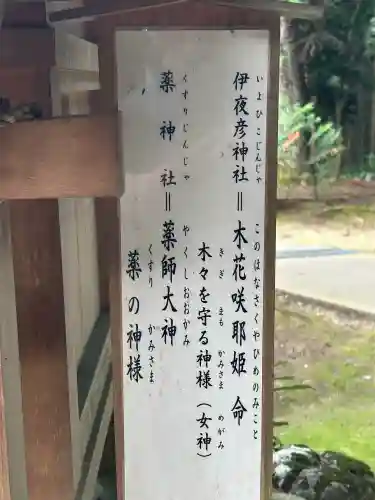 いよひこじんじゃ このはなさくやひめのみこと
伊夜彦神社＝木花咲耶姫命
きぎ まも かみさま めがみ
木々を守る神様（女神）
くすりじんじゃ やくしおおかみ
薬神社＝薬師大神
くすり かみさま
薬の神様